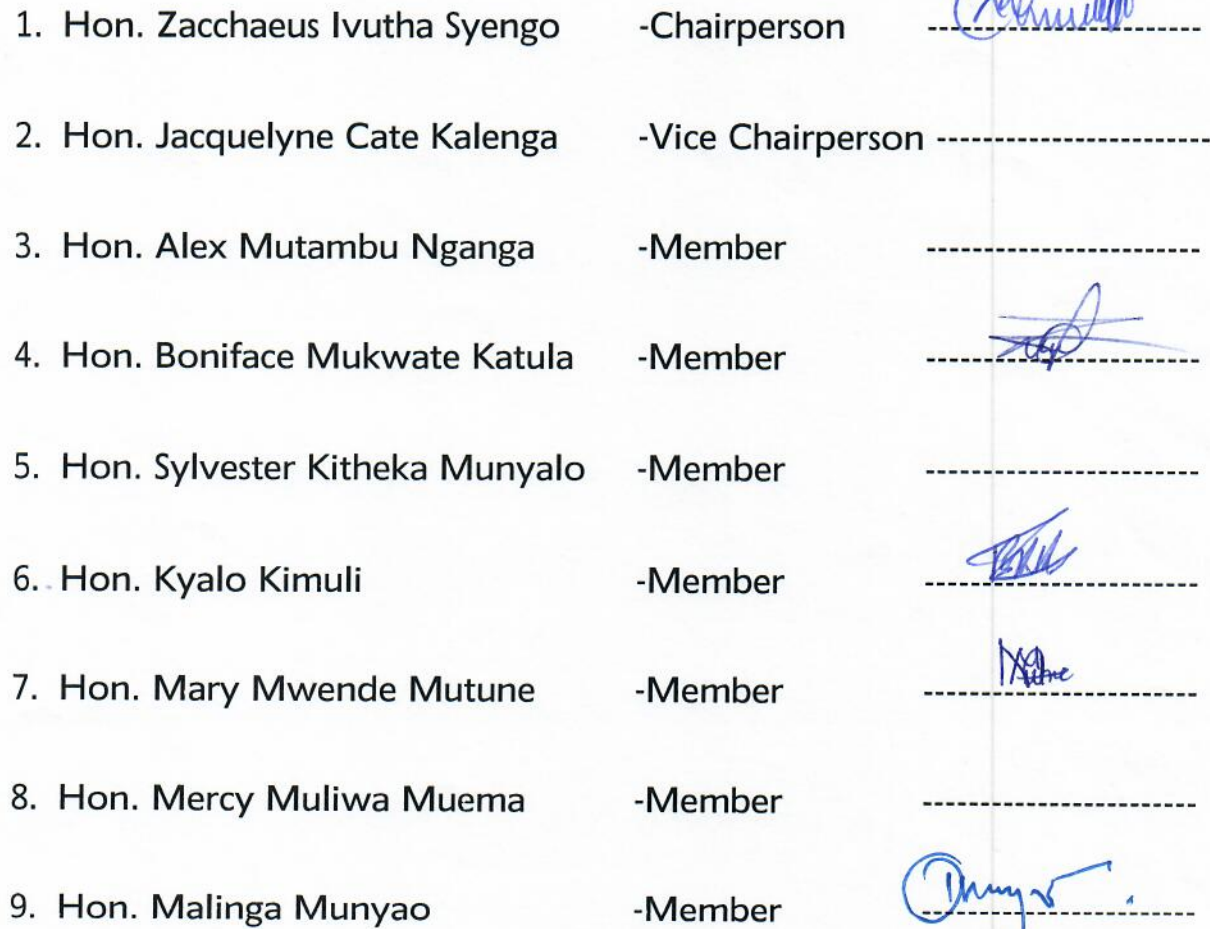 1. Hon. Zacchaeus Ivutha Syengo -Chairperson
2. Hon. Jacquelyne Cate Kalenga -Vice Chairperson
3. Hon. Alex Mutambu Nganga -Member
4. Hon. Boniface Mukwate Katula -Member
5. Hon. Sylvester Kitheka Munyalo -Member
6. Hon. Kyalo Kimuli -Member
7. Hon. Mary Mwende Mutune -Member
8. Hon. Mercy Muliwa Muema -Member
9. Hon. Malinga Munyao -Member